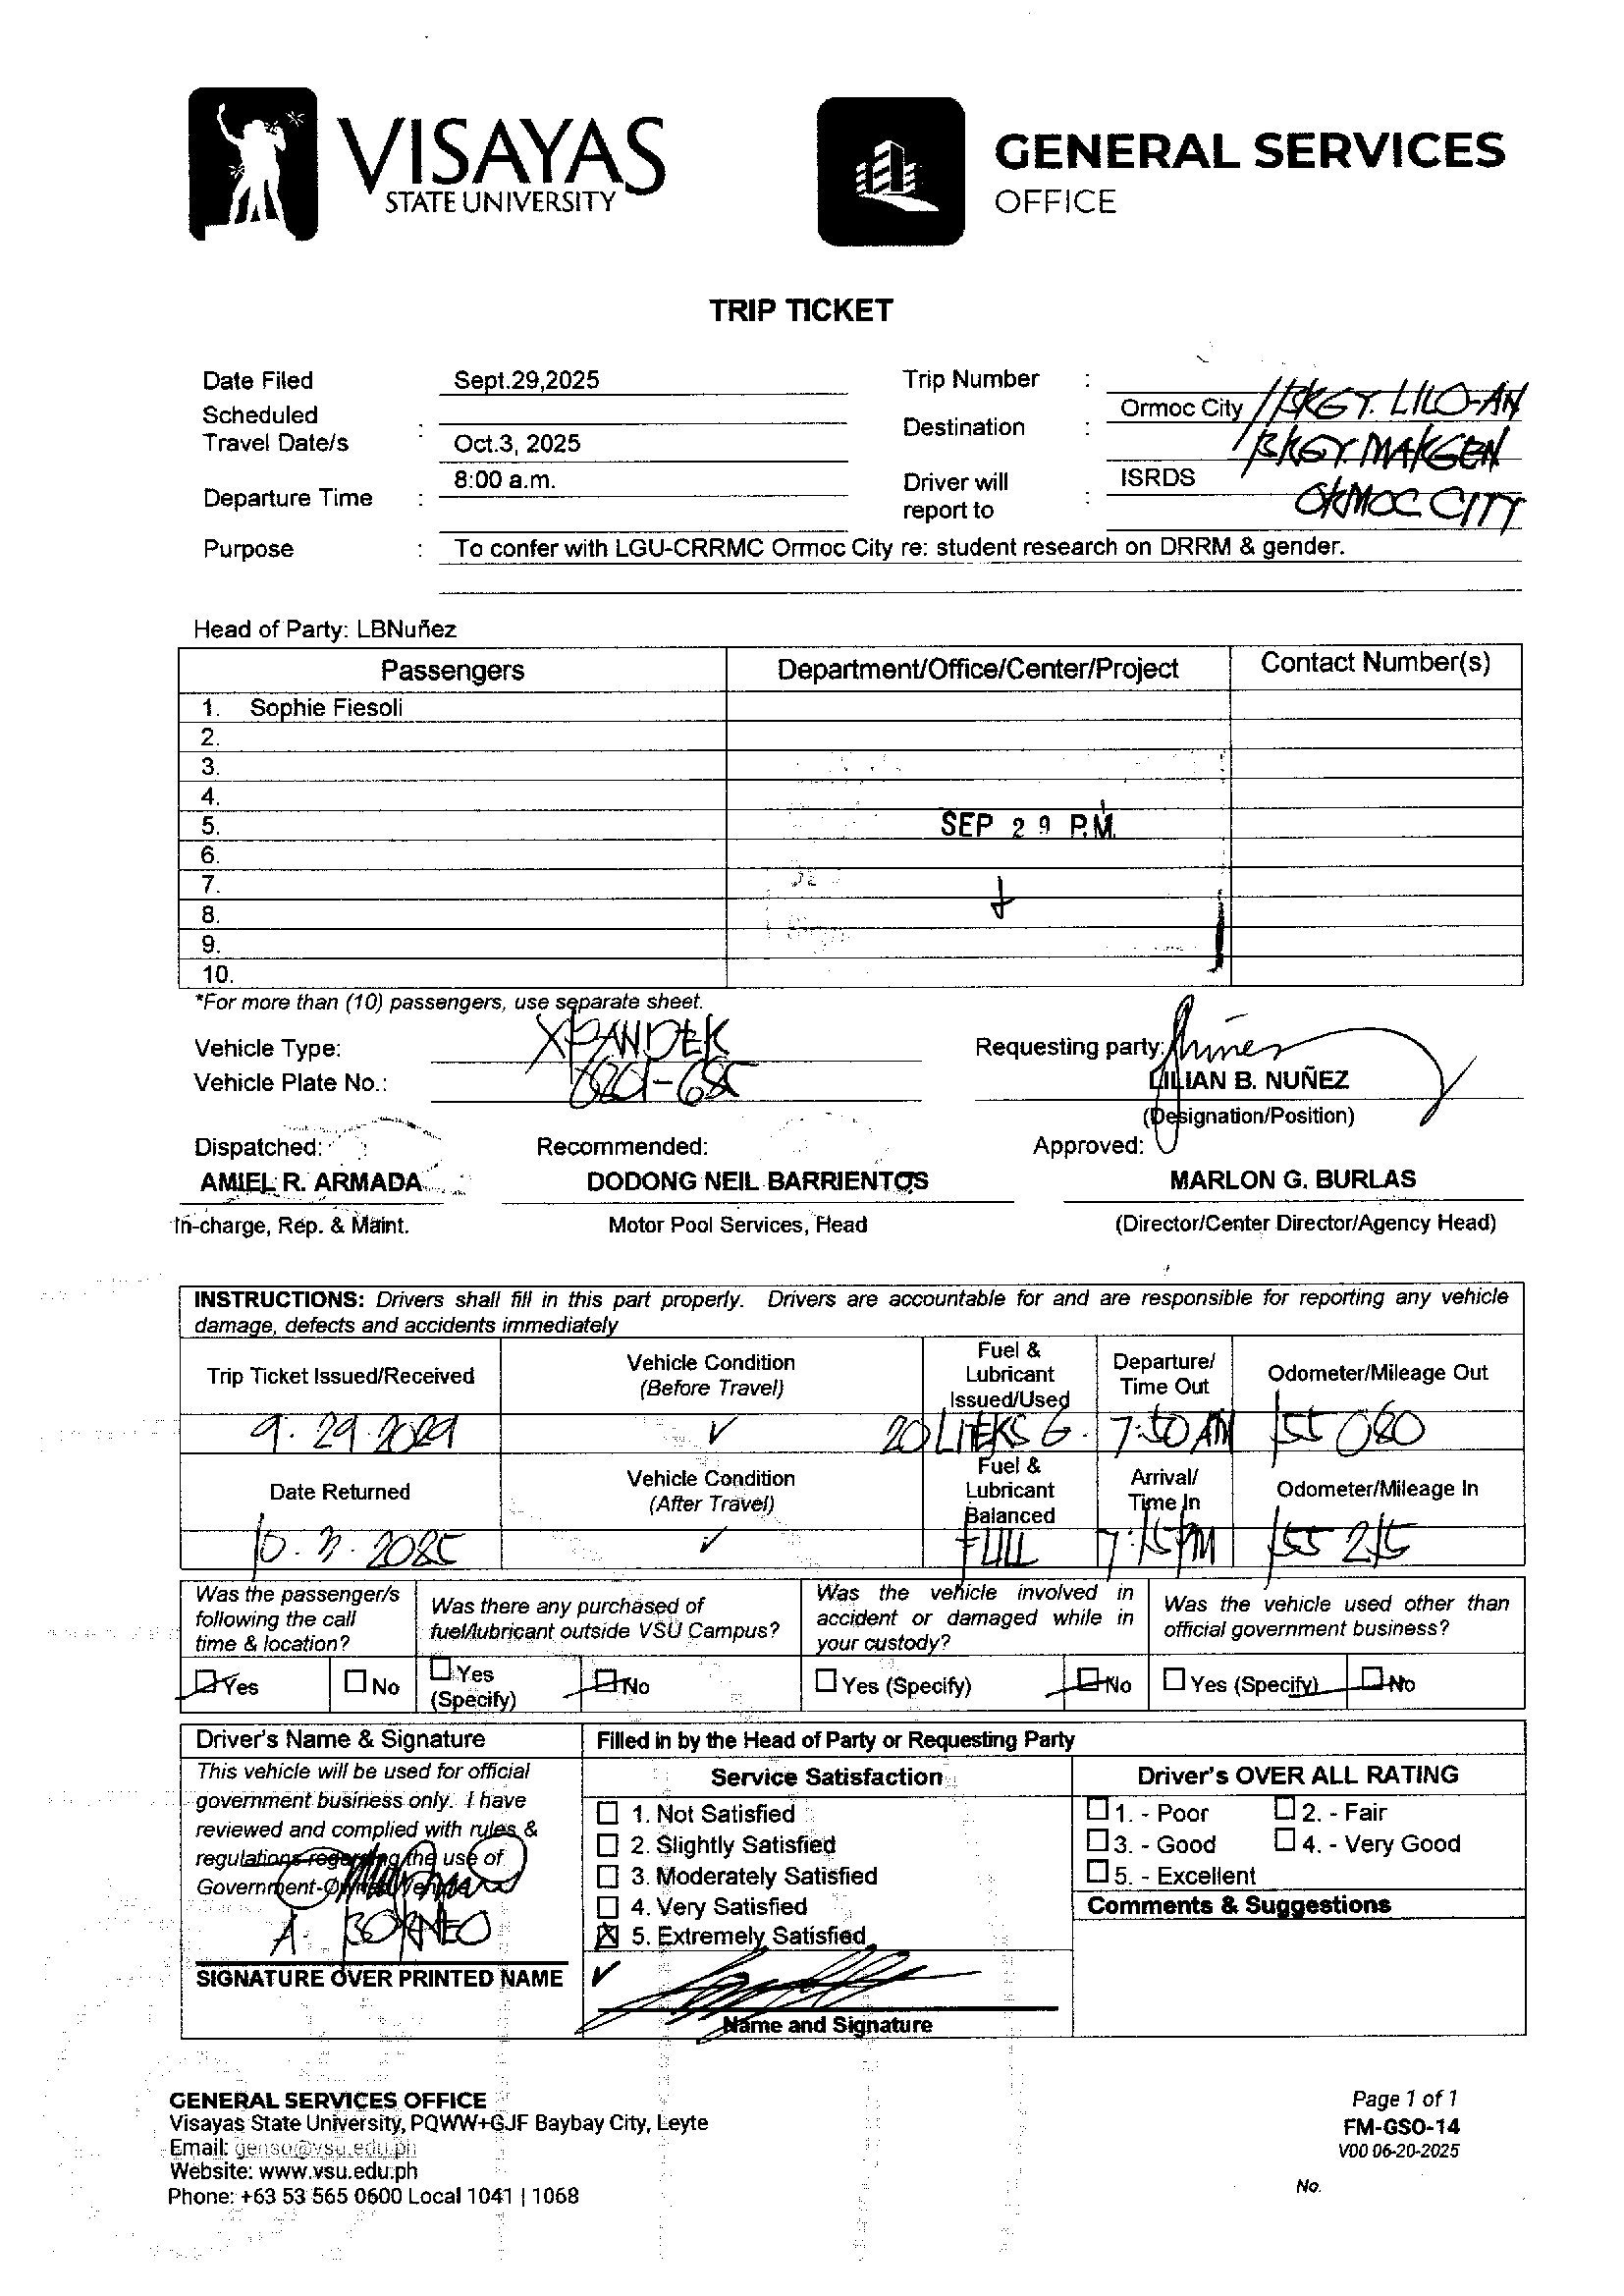 VISAYAS
STATE UNIVERSITY
GENERAL SERVICES
OFFICE
TRIP TICKET
Date Filed Sept.29,2025
Trip Number :
Scheduled Travel Date/s : Oct.3, 2025
Destination : Ormoc City / BRGY. LILO-AN
/ BRGY. MARGEN
ORMOC CITY
Departure Time : 8:00 a.m.
Driver will report to : ISRDS
Purpose : To confer with LGU-CRRMC Ormoc City re: student research on DRRM & gender.
Head of Party: LBNuñez
Passengers Department/Office/Center/Project Contact Number(s)
1. Sophie Fiesoli
2.
3.
4.
5.
SEP 29 P.M.
6.
7.
8.
9.
10.
*For more than (10) passengers, use separate sheet.
Vehicle Type: XPANDER
Requesting party:
Vehicle Plate No.:
LILIAN B. NUÑEZ
(Designation/Position)
Dispatched: Recommended: Approved:
AMIEL R. ARMADA DODONG NEIL BARRIENTOS MARLON G. BURLAS
In-charge, Rep. & Maint. Motor Pool Services, Head (Director/Center Director/Agency Head)
INSTRUCTIONS: Drivers shall fill in this part properly. Drivers are accountable for and are responsible for reporting any vehicle
damage, defects and accidents immediately
Trip Ticket Issued/Received Vehicle Condition (Before Travel) Fuel & Lubricant Issued/Used Departure/ Time Out Odometer/Mileage Out
✓ 20 LITERS G. 7:50 AM 155 080
Date Returned Vehicle Condition (After Travel) Fuel & Lubricant Balanced Arrival/ Time In Odometer/Mileage In
10. 3. 2025 ✓ FULL 7:15 PM 155 215
Was the passenger/s following the call time & location?
Was there any purchased of fuel/lubricant outside VSU Campus?
Was the vehicle involved in accident or damaged while in your custody?
Was the vehicle used other than official government business?
Yes No Yes (Specify) No Yes (Specify) No Yes (Specify) No
Driver's Name & Signature
This vehicle will be used for official
government business only. I have
reviewed and complied with rules &
regulations regarding the use of
Government-Owned Vehicle
A. BORNEO
SIGNATURE OVER PRINTED NAME
Filled in by the Head of Party or Requesting Party
Service Satisfaction
1. Not Satisfied
2. Slightly Satisfied
3. Moderately Satisfied
4. Very Satisfied
5. Extremely Satisfied
Name and Signature
Driver's OVER ALL RATING
1. - Poor 2. - Fair
3. - Good 4. - Very Good
5. - Excellent
Comments & Suggestions
GENERAL SERVICES OFFICE
Visayas State University, PQWW+GJF Baybay City, Leyte
Email: genso@vsu.edu.ph
Website: www.vsu.edu.ph
Phone: +63 53 565 0600 Local 1041 | 1068
Page 1 of 1
FM-GSO-14
V00 06-20-2025
No.